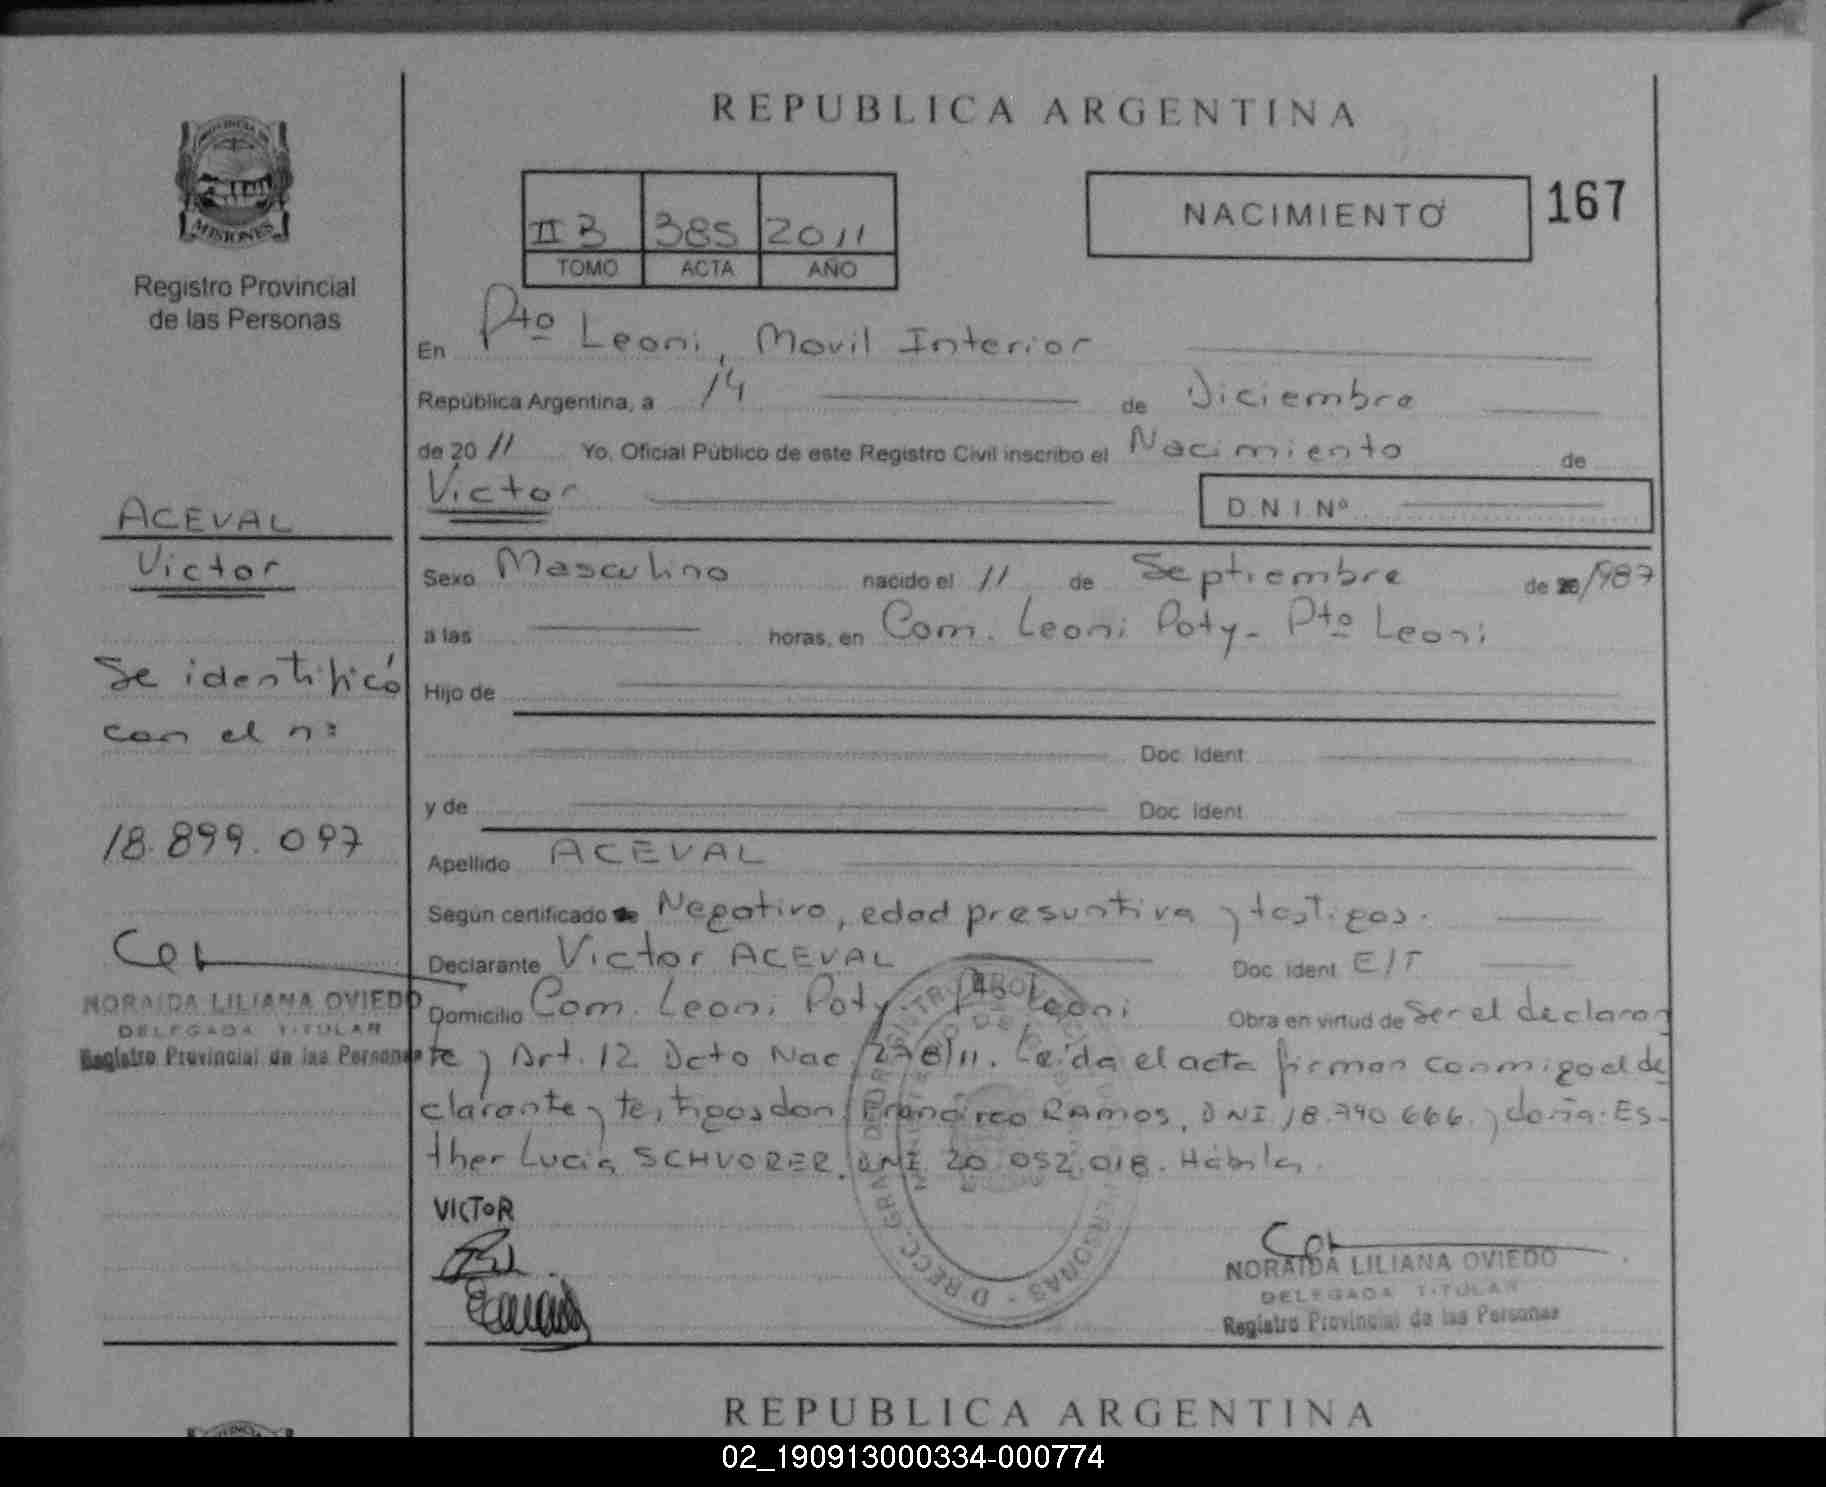 REPUBLICA ARGENTINA
PROVINCIA DE
MISIONES
Registro Provincial
de las Personas
II B 385 2011
TOMO ACTA AÑO
NACIMIENTO
167
En Pto Leoni, Movil Interior
República Argentina, a 14 de Diciembre
de 2011 Yo, Oficial Público de este Registro Civil inscribo el Nacimiento de
Victor D.N.I.Nº
ACEVAL
Victor
Se identificó
con el nº
18.899.097
NORAIDA LILIANA OVIEDO
DELEGADA TITULAR
Registro Provincial de las Personas
Sexo Masculino nacido el 11 de Septiembre de 1987
a las horas, en Com. Leoni Poty - Pto Leoni
Hijo de
Doc. Ident
y de Doc. Ident
Apellido ACEVAL
Según certificado de Negativo, edad presuntiva y testigos.
Declarante Victor ACEVAL Doc. Ident E/T
Domicilio Com. Leoni Poty Pto Leoni Obra en virtud de Ser el declaran
te y Art. 12 Dcto Nac. 278/11. Leida el acta firman conmigo el de
clarante y testigos don Francisco RAMOS, DNI 18.790.666. y doña Es-
ther Lucia SCHVORER, DNI 20.052.018. Hábiles.
VICTOR
NORAIDA LILIANA OVIEDO
DELEGADA TITULAR
Registro Provincial de las Personas
REPUBLICA ARGENTINA
02_190913000334-000774